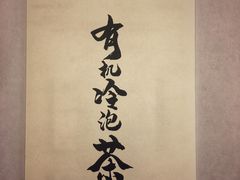 有机冷泡茶